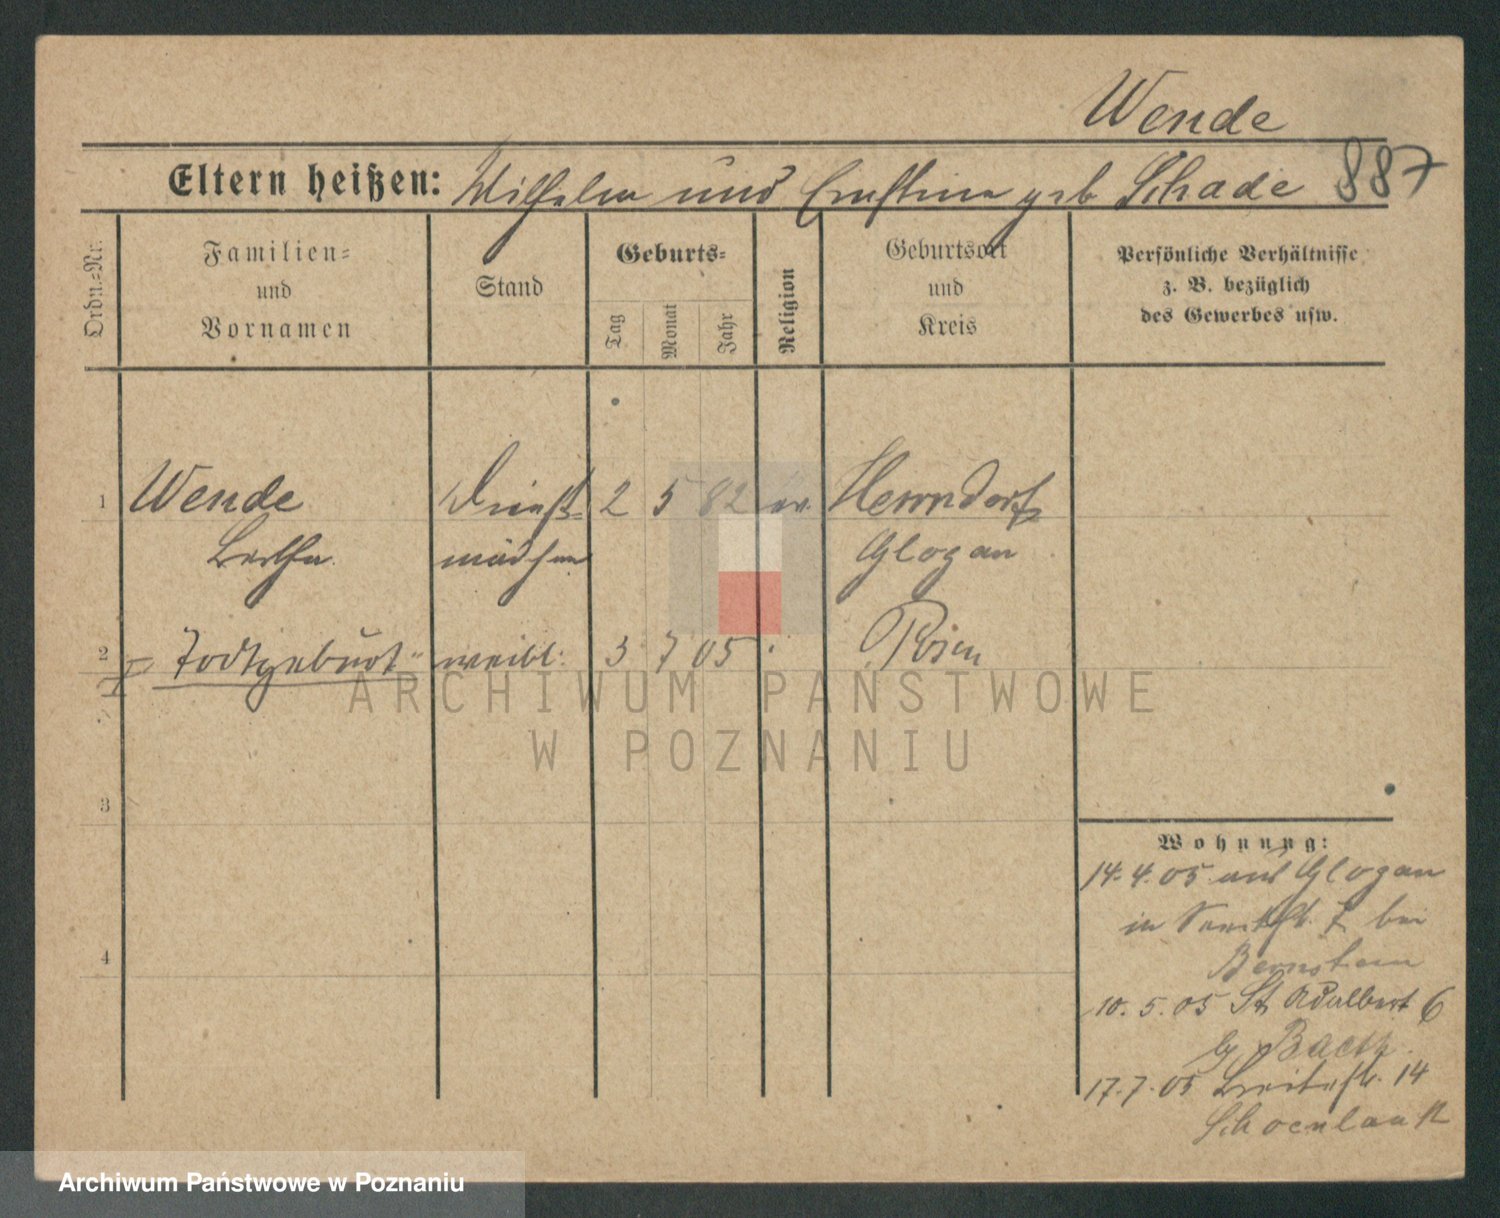 Wende
Eltern heißen: Wilhelm und Ernstine geb Schade 887
Ordn.=Nr.
Familien=
und
Vornamen
Stand
Geburts=
Tag
Monat
Jahr
Religion
Geburtsort
und
Kreis
Persönliche Verhältnisse
z. B. bezüglich
des Gewerbes usw.
1 Wende Dienst= 2 5 82 ev. Herrndorf
Bertha mädchen Glogau
2 Todtgeburt weibl: 3 7 05 Posen
3
4
Wohnung:
14.4.05 aus Glogau
in 7 bei
Bernstein
10.5.05 St Adalbert 6
b/
17.7.05 Breitestr. 14
Schoenlank
ARCHIWUM PAŃSTWOWE
W POZNANIU
Archiwum Państwowe w Poznaniu